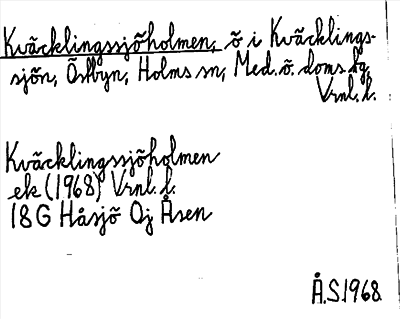 Kväcklingssjöholmen, ö i Kväcklings-
sjön, Östbyn, Holms sn, Med. ö. doms.sg,
Vrnl. l.
Kväcklingssjöholmen
ek (1968) Vrnl. l.
18G Håsjö Oj Åsen
Å.S.1968